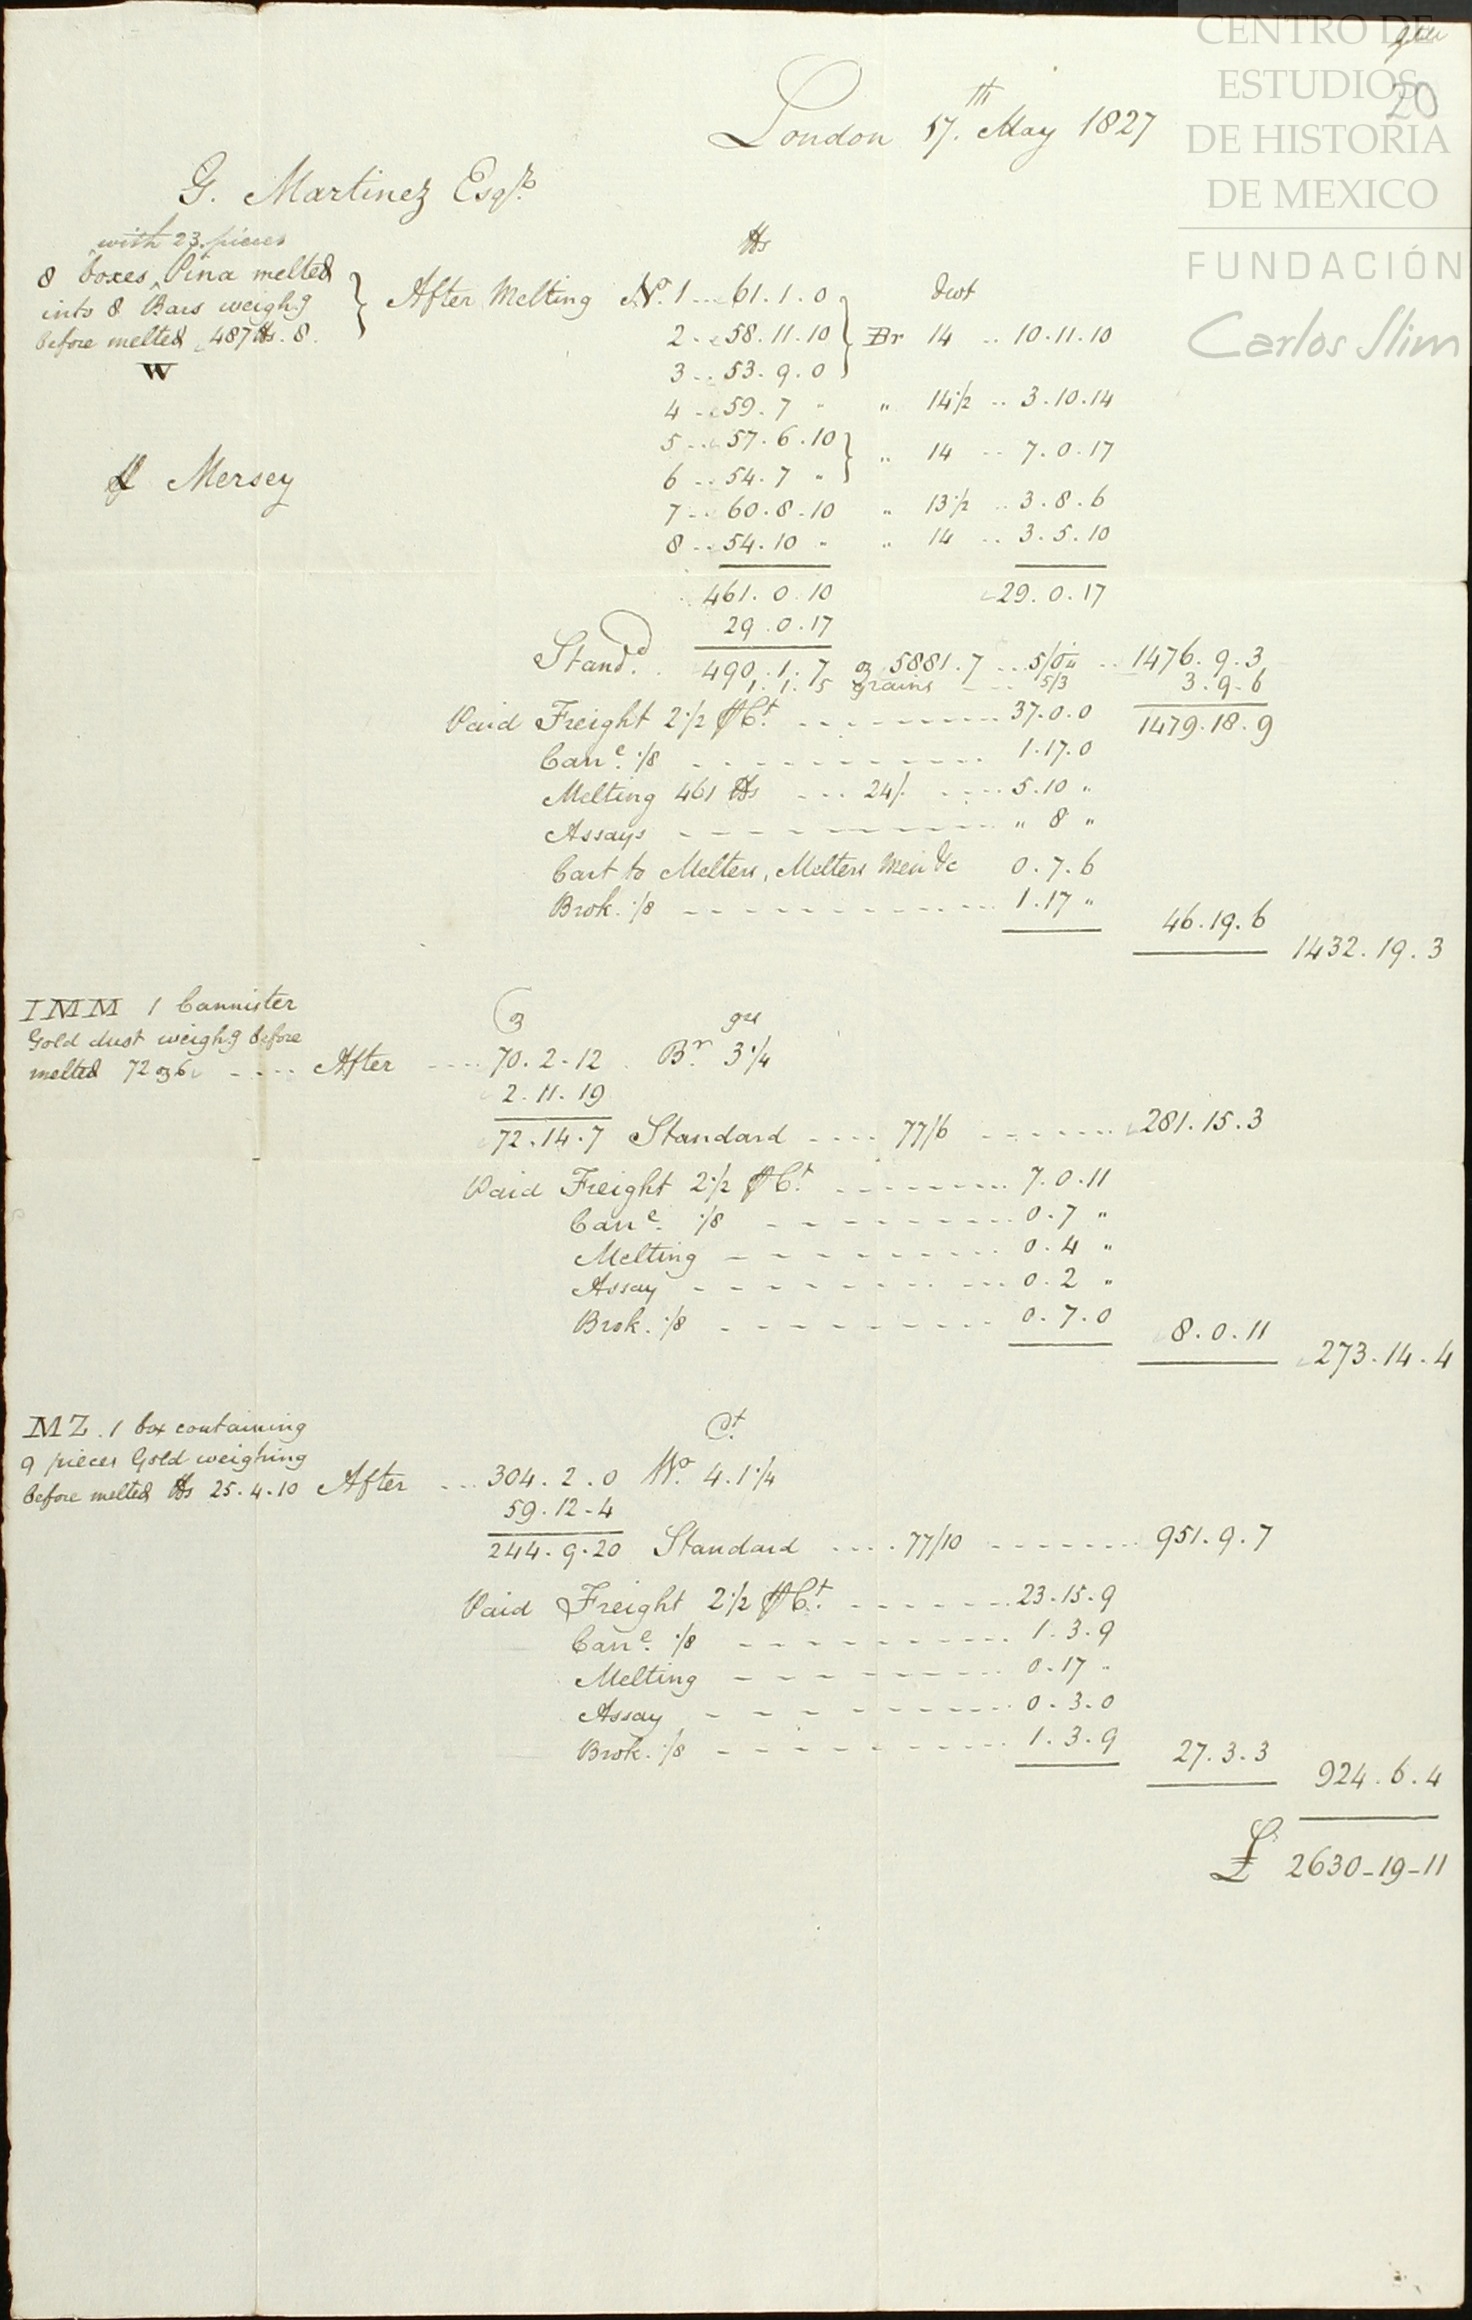 CENTRO DE
ESTUDIOS
DE HISTORIA
DE MEXICO
FUNDACIÓN
Carlos Slim
20
London 17th. May 1827
G. Martinez Esqr.
with 23 pieces
8 boxes Pina melted
into 8 Bars weighg
before melted 487 lbs. 8.
W
p Mersey
lbs
After Melting No. 1 ... 61. 1. 0 dwt
2 .. 58. 11. 10 Br 14 .. 10. 11. 10
3 .. 53. 9. 0
4 .. 59. 7 " " 14 1/2 .. 3. 10. 14
5 ... 57. 6. 10 " 14 .. 7. 0. 17
6 .. 54. 7 "
7 .. 60. 8. 10 " 13 1/2 .. 3. 8. 6
8 .. 54. 10 " " 14 .. 3. 5. 10
461. 0. 10 29. 0. 17
29. 0. 17
Standd. 490. 1. 7 oz 5881. 7 ... 1476. 9. 3
1. 1. 5 grains 5/3 3. 9. 6
Paid Freight 2 1/2 p Ct. 37. 0. 0 1479. 18. 9
Carre. 1/8 1. 17. 0
Melting 461 lbs ... 24/. 5. 10 "
Assays " 8 "
Cart to Melters, Melters Men &c 0. 7. 6
Brok. 1/8 1. 17 "
46. 19. 6
1432. 19. 3
IMM 1 Cannister
Gold dust weighg before
melted 72 oz 6 .... After .... 70. 2. 12 Br. 3 1/4
oz grs
2. 11. 19
72. 14. 7 Standard .... 77/6 281. 15. 3
Paid Freight 2 1/2 p Ct. 7. 0. 11
Carre. 1/8 0. 7 "
Melting 0. 4 "
Assay 0. 2 "
Brok. 1/8 0. 7. 0
8. 0. 11
273. 14. 4
MZ. 1 box containing
9 pieces Gold weighing
before melted lbs 25. 4. 10 After ... 304. 2. 0 Wo. 4. 1 1/4
Ct.
59. 12. 4
244. 9. 20 Standard .... 77/10 951. 9. 7
Paid Freight 2 1/2 p Ct. 23. 15. 9
Carre. 1/8 1. 3. 9
Melting 0. 17 "
Assay 0. 3. 0
Brok. 1/8 1. 3. 9
27. 3. 3
924. 6. 4
£ 2630-19-11